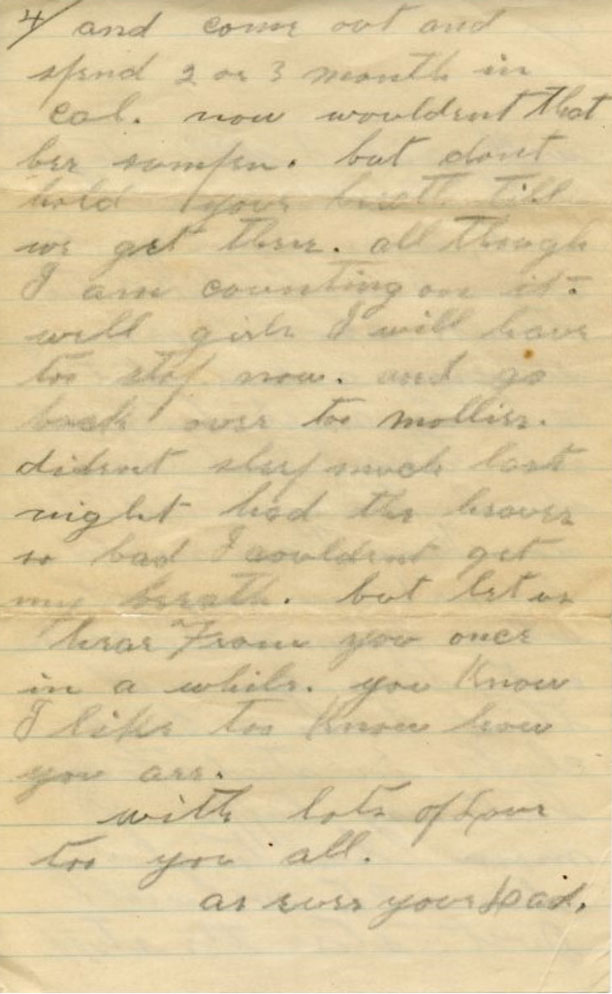 4/ and come out and
spend 2 or 3 month in
Cal. now wouldent that
ber sumpen. but dont
hold your breath till
we get there. all though
I am counting on it.
well girls I will have
too stop now. and go
back over to Mollies.
dident sleep much last
night had the heaves
so bad I couldent get
my breath. but let us
hear From you once
in a while. you Know
I like too Know how
you are.
with lots of Love
too you all.
as ever your Dad.